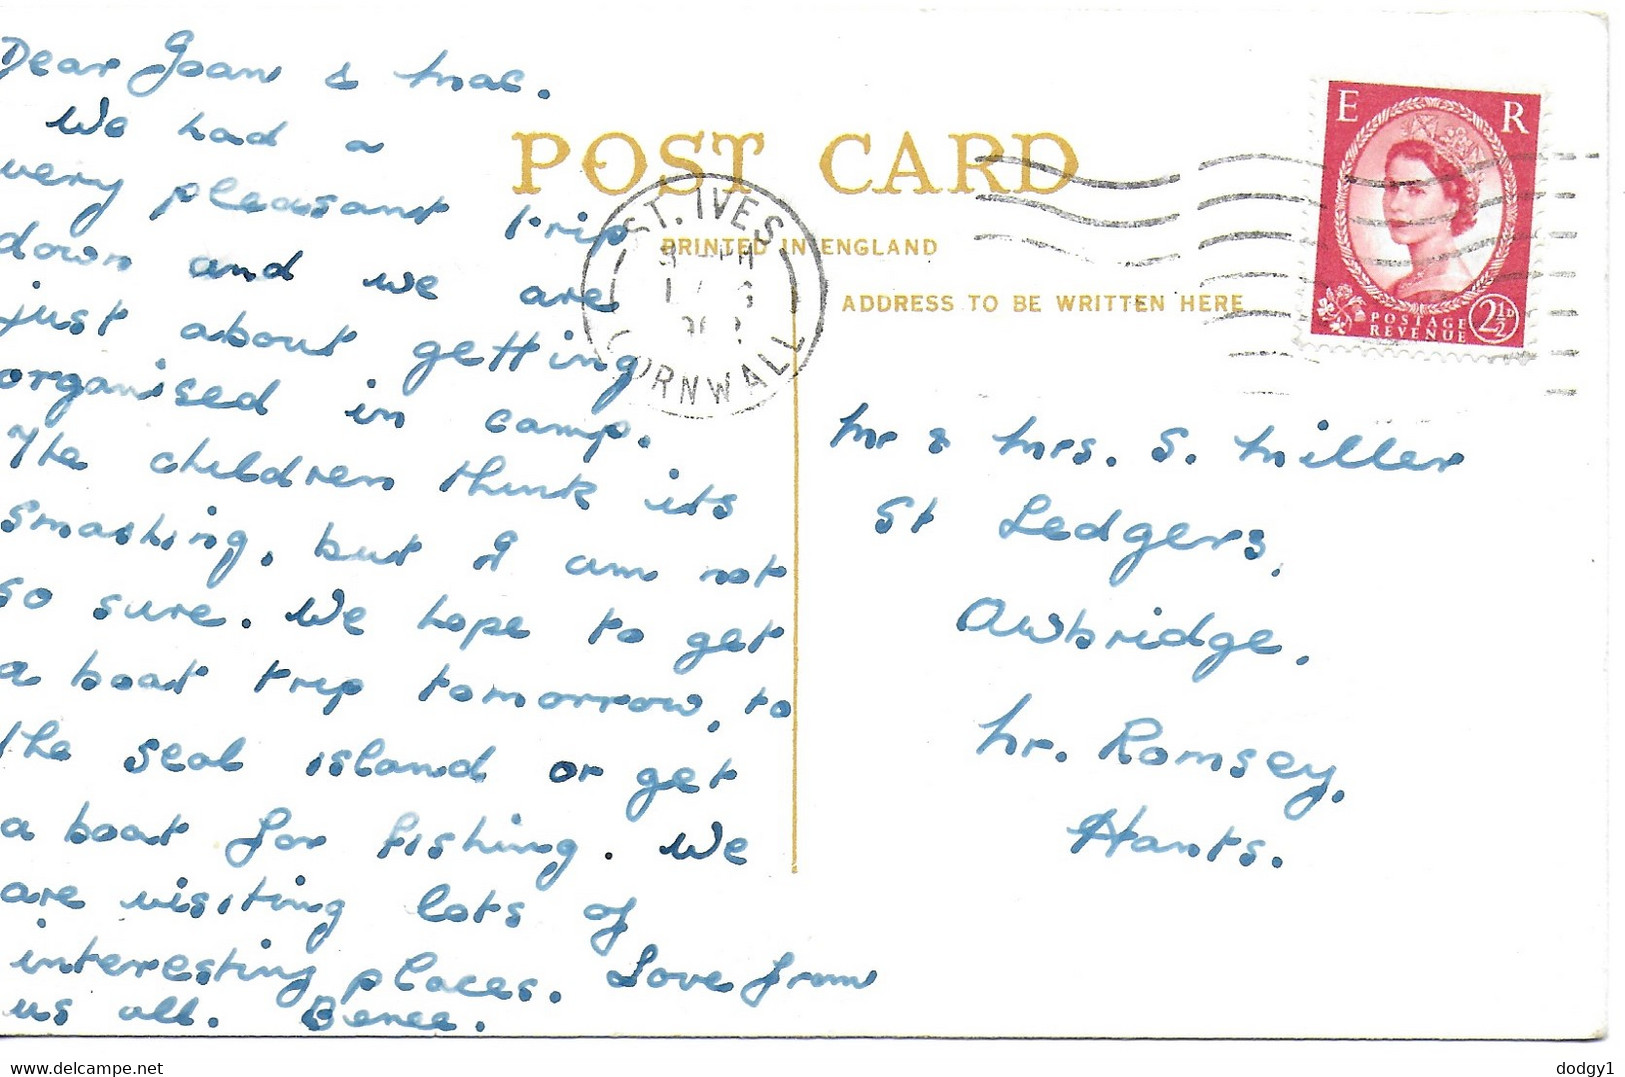 Dear Joan & Mac.
We had a
very pleasant trip
down and we are
just about getting
organised in camp.
The children think its
smashing, but I am not
so sure. We hope to get
a boat trip tomorrow, to
the seal island or get
a boat for fishing. We
are visiting lots of
interesting places. Love from
us all.
POST CARD
PRINTED IN ENGLAND
ADDRESS TO BE WRITTEN HERE
ST. IVES
CORNWALL
E R
POSTAGE
REVENUE
2½D
Mr & Mrs. S. Miller
St Ledgers,
Awbridge.
Nr. Romsey,
Hants.
www.delcampe.net
dodgy1